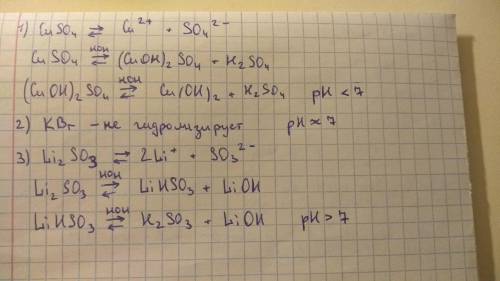 1) CuSO₄ ⇄ Cu²⁺ + SO₄²⁻
CuSO₄ ⇄ HOH (CuOH)₂SO₄ + H₂SO₄
(CuOH)₂SO₄ ⇄ HOH Cu(OH)₂ + H₂SO₄ pH < 7
2) KBr – не гидролизирует pH ≈ 7
3) Li₂SO₃ ⇄ 2Li⁺ + SO₃²⁻
Li₂SO₃ ⇄ HOH LiHSO₃ + LiOH
LiHSO₃ ⇄ HOH H₂SO₃ + LiOH pH > 7